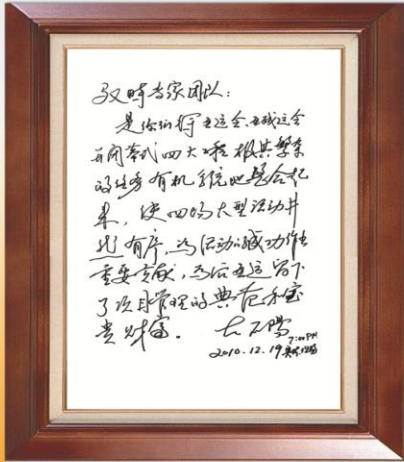 驭时专家团队:
是你们将亚运会、亚残运会
开闭幕式四大工程极其繁杂
的任务有机系统地整合起
来，使四场大型活动井
然有序，为活动的成功作出
重要贡献，为后亚运留下
了项目管理的典范和宝
贵财富.
7:00PM
2010.12.19